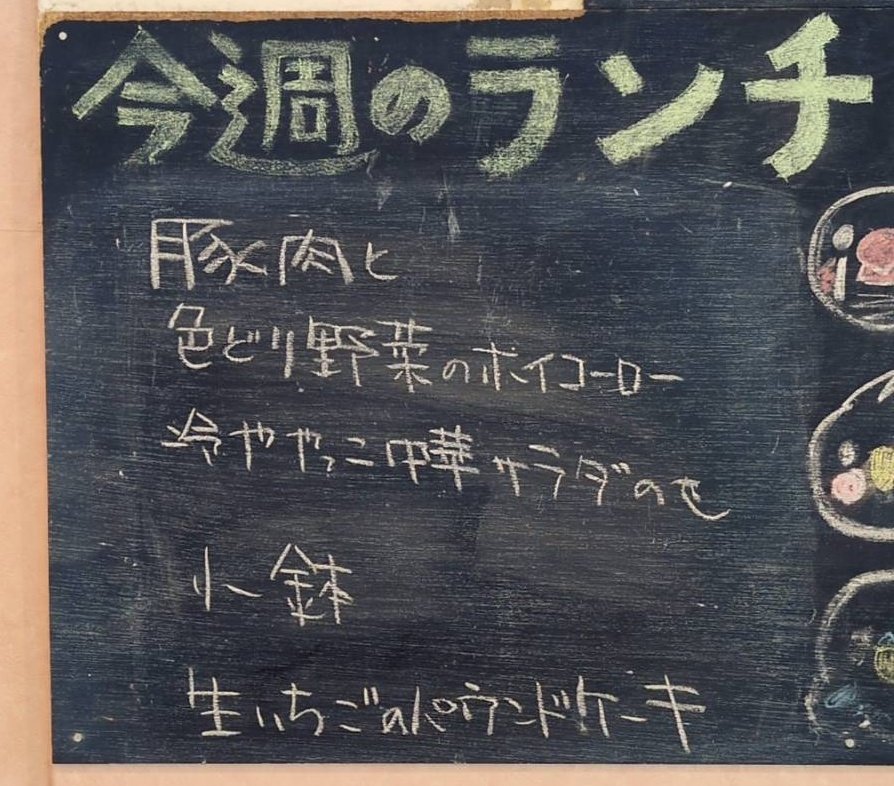 今週のランチ
豚肉と
色どり野菜のホイコーロー
冷ややっこ中華サラダのせ
小鉢
生いちごのパウンドケーキ